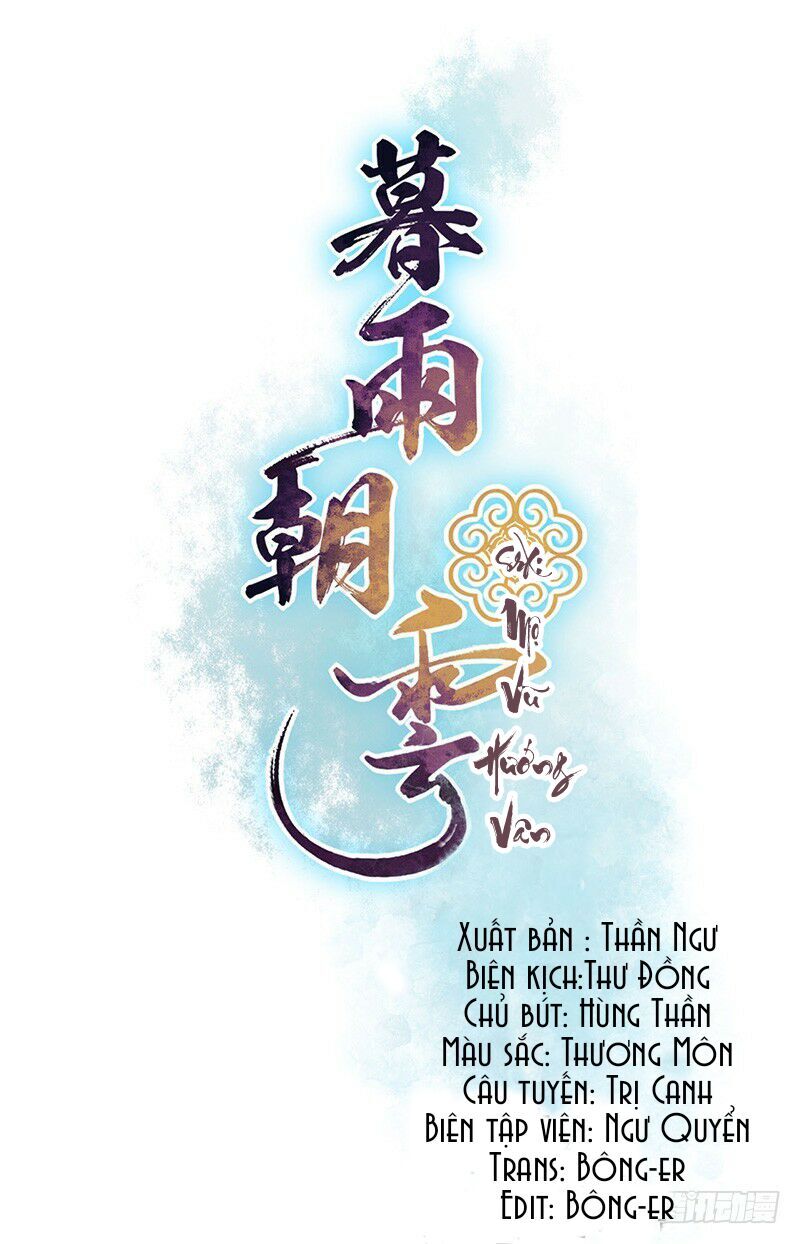 暮
雨
朝
雲
Mộ
Vũ
Hướng
Vân
Xuất bản : Thần Ngư
Biên kịch:Thư Đồng
Chủ bút: Hùng Thần
Màu sắc: Thương Môn
Câu tuyến: Trị Canh
Biên tập viên: Ngư Quyển
Trans: Bông-er
Edit: Bông-er